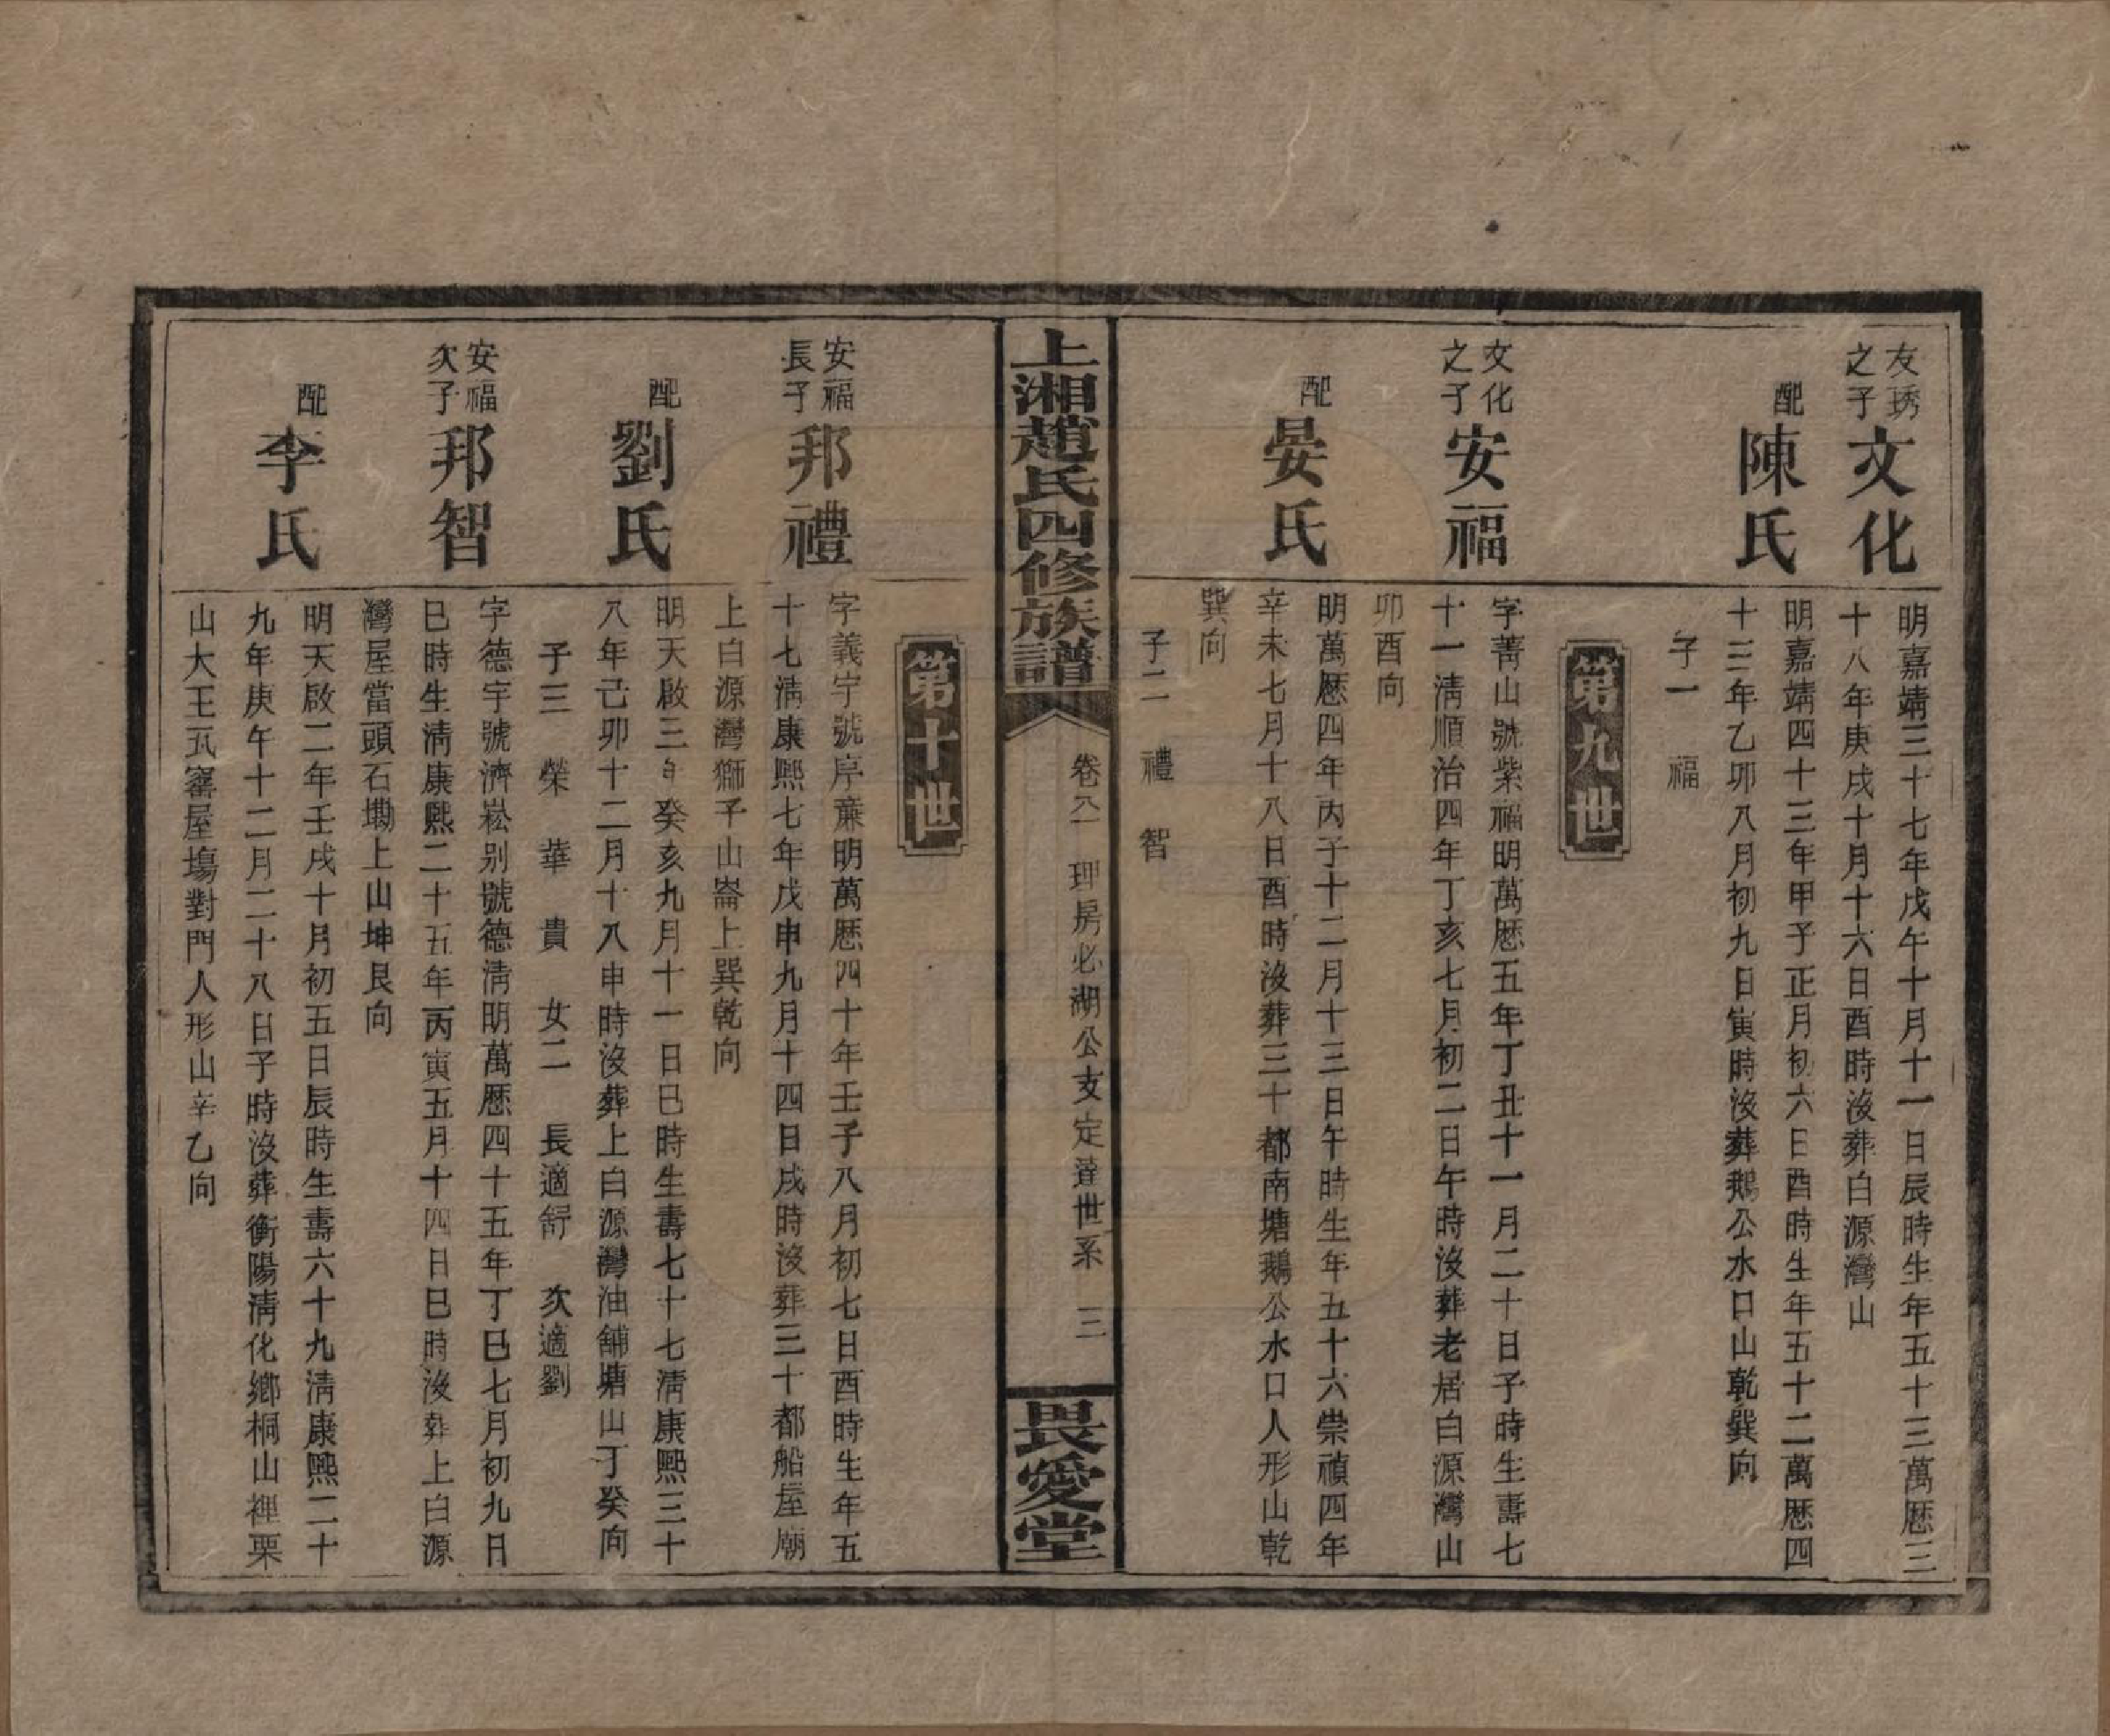 友琇
之子
文化
明嘉靖三十七年戊午十月十一日辰時生年五十三萬歷三
十八年庚戌十月十六日酉時沒葬白源灣山
配
陳氏
明嘉靖四十三年甲子正月初六日酉時生年五十二萬歷四
十三年乙卯八月初九日寅時沒葬鵝公水口山乾巽向
子一 福
第九世
文化
之子
安福
字菁山號紫福明萬歷五年丁丑十一月二十日子時生壽七
十一清順治四年丁亥七月初二日午時沒葬老居白源灣山
卯酉向
配
晏氏
明萬歷四年丙子十二月十三日午時生年五十六崇禎四年
辛未七月十八日酉時沒葬三十都南塘鵝公水口人形山乾
巽向
子二 禮 智
上湘趙氏四修族譜
卷六一 理房必湖公支定達世系 三
畏愛堂
第十世
安福
長子
邦禮
字義宇號序蓭明萬歷四十年壬子八月初七日酉時生年五
十七淸康熙七年戊申九月十四日戌時沒葬三十都船屋廟
上白源灣獅子山崙上巽乾向
配
劉氏
明天啟三年癸亥九月十一日巳時生壽七十七淸康熙三十
八年己卯十二月十八申時沒葬上白源灣油舖塘山丁癸向
子三 榮 華 貴 女二 長適舒 次適劉
安福
次子
邦智
字德宇號濟崧別號德淸明萬歷四十五年丁巳七月初九日
巳時生淸康熙二十五年丙寅五月十四日巳時沒葬上白源
灣屋當頭石墈上山坤艮向
配
李氏
明天啟二年壬戌十月初五日辰時生壽六十九淸康熙二十
九年庚午十二月二十八日子時沒葬衡陽淸化鄉桐山裡栗
山大王瓦窰屋塲對門人形山辛乙向